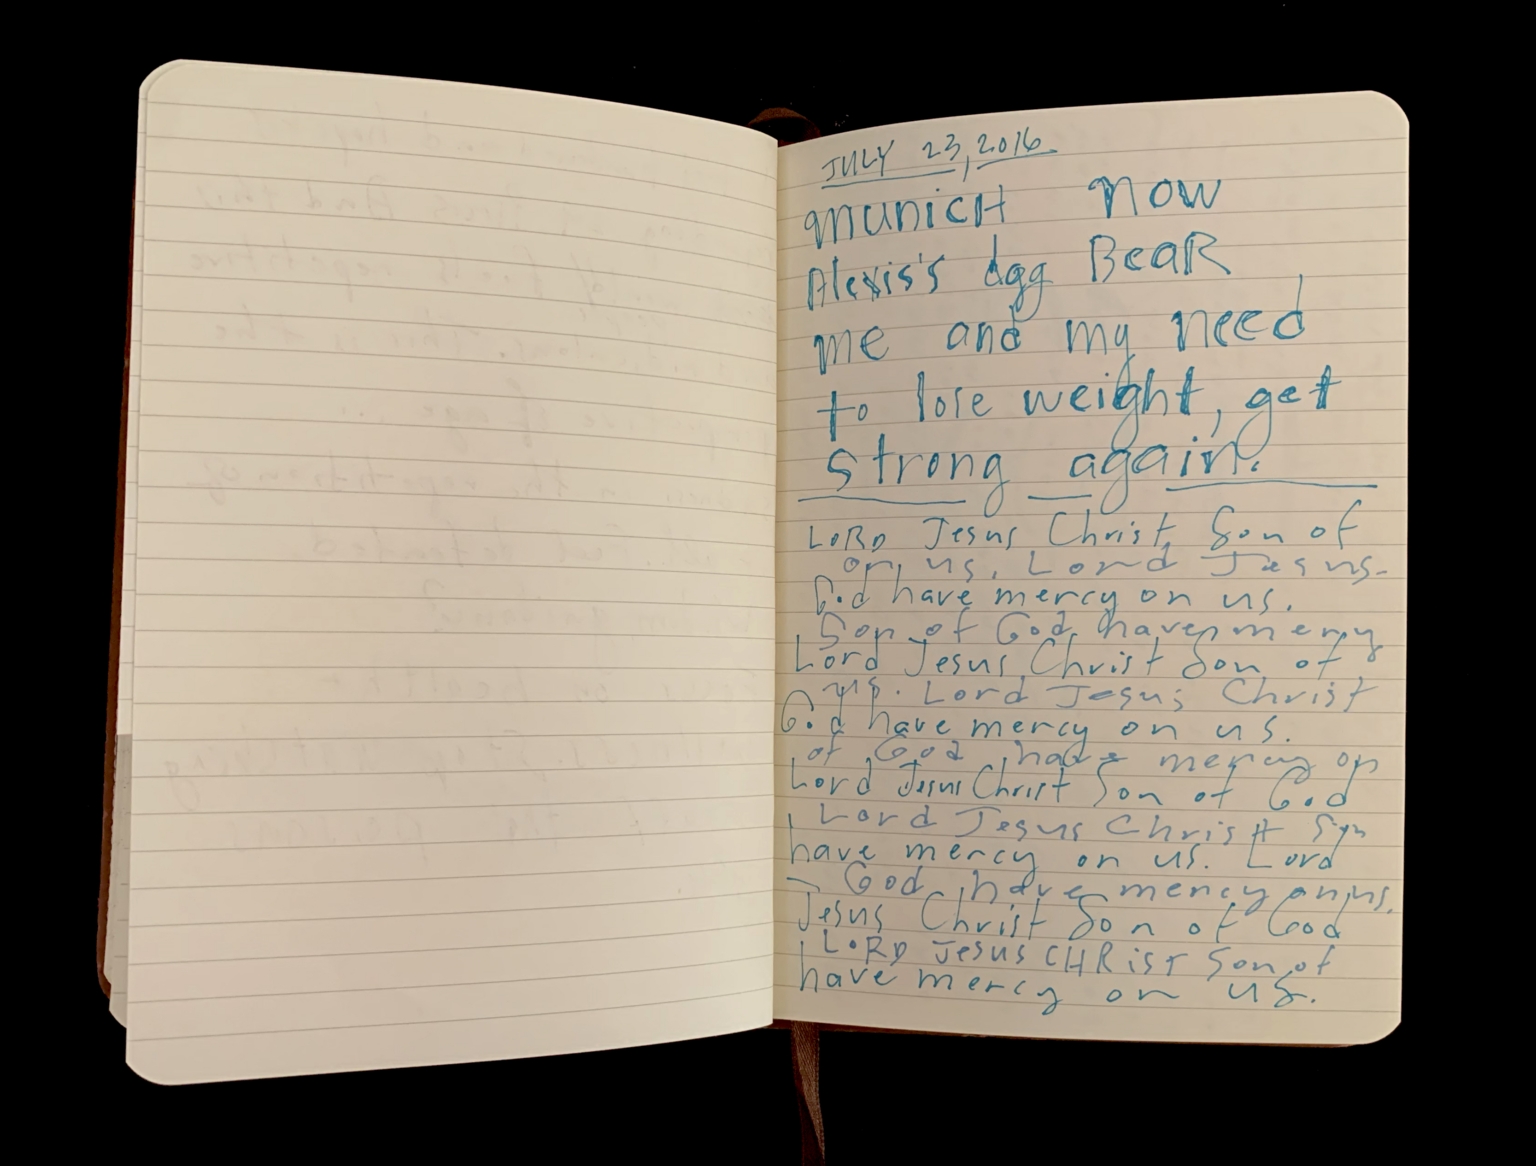 JULY 23, 2016
MUNICH NOW
Alexis's dgg BeaR
me and my need
to lose weight, get
strong again.
LORD Jesus Christ Son of
on us. Lord Jesus
God have mercy on us.
Son of God, have mercy
Lord Jesus Christ Son of
us. Lord Jesus Christ
God have mercy on us.
of God have mercy on
Lord Jesus Christ Son of God
Lord Jesus Christ Son
have mercy on us. Lord
God, have mercy on us.
Jesus Christ Son of God
LORD Jesus CHRist Son of
have mercy on us.